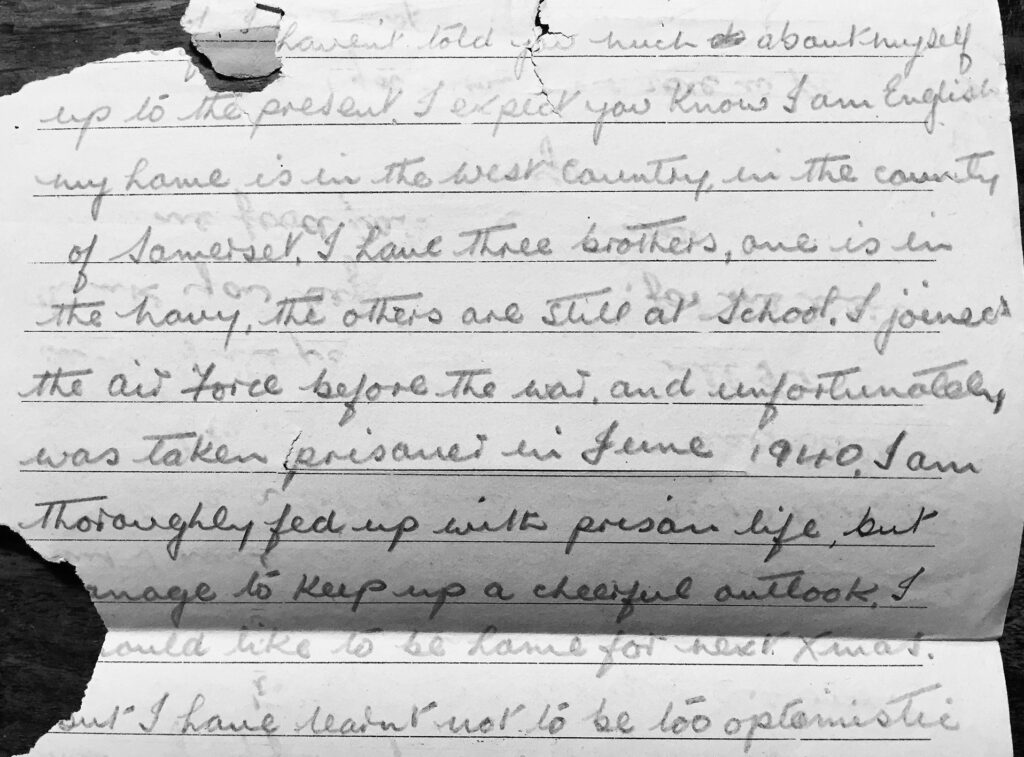 I haven't told you much about myself
up to the present. I expect you know I am English
my home is in the west country, in the county
of Somerset. I have three brothers, one is in
the navy, the others are still at School. I joined
the air Force before the war, and unfortunately
was taken prisoner in June 1940. I am
thoroughly fed up with prison life, but
anage to keep up a cheerful outlook. I
ould like to be home for next Xmas.
but I have learnt not to be too optemistic